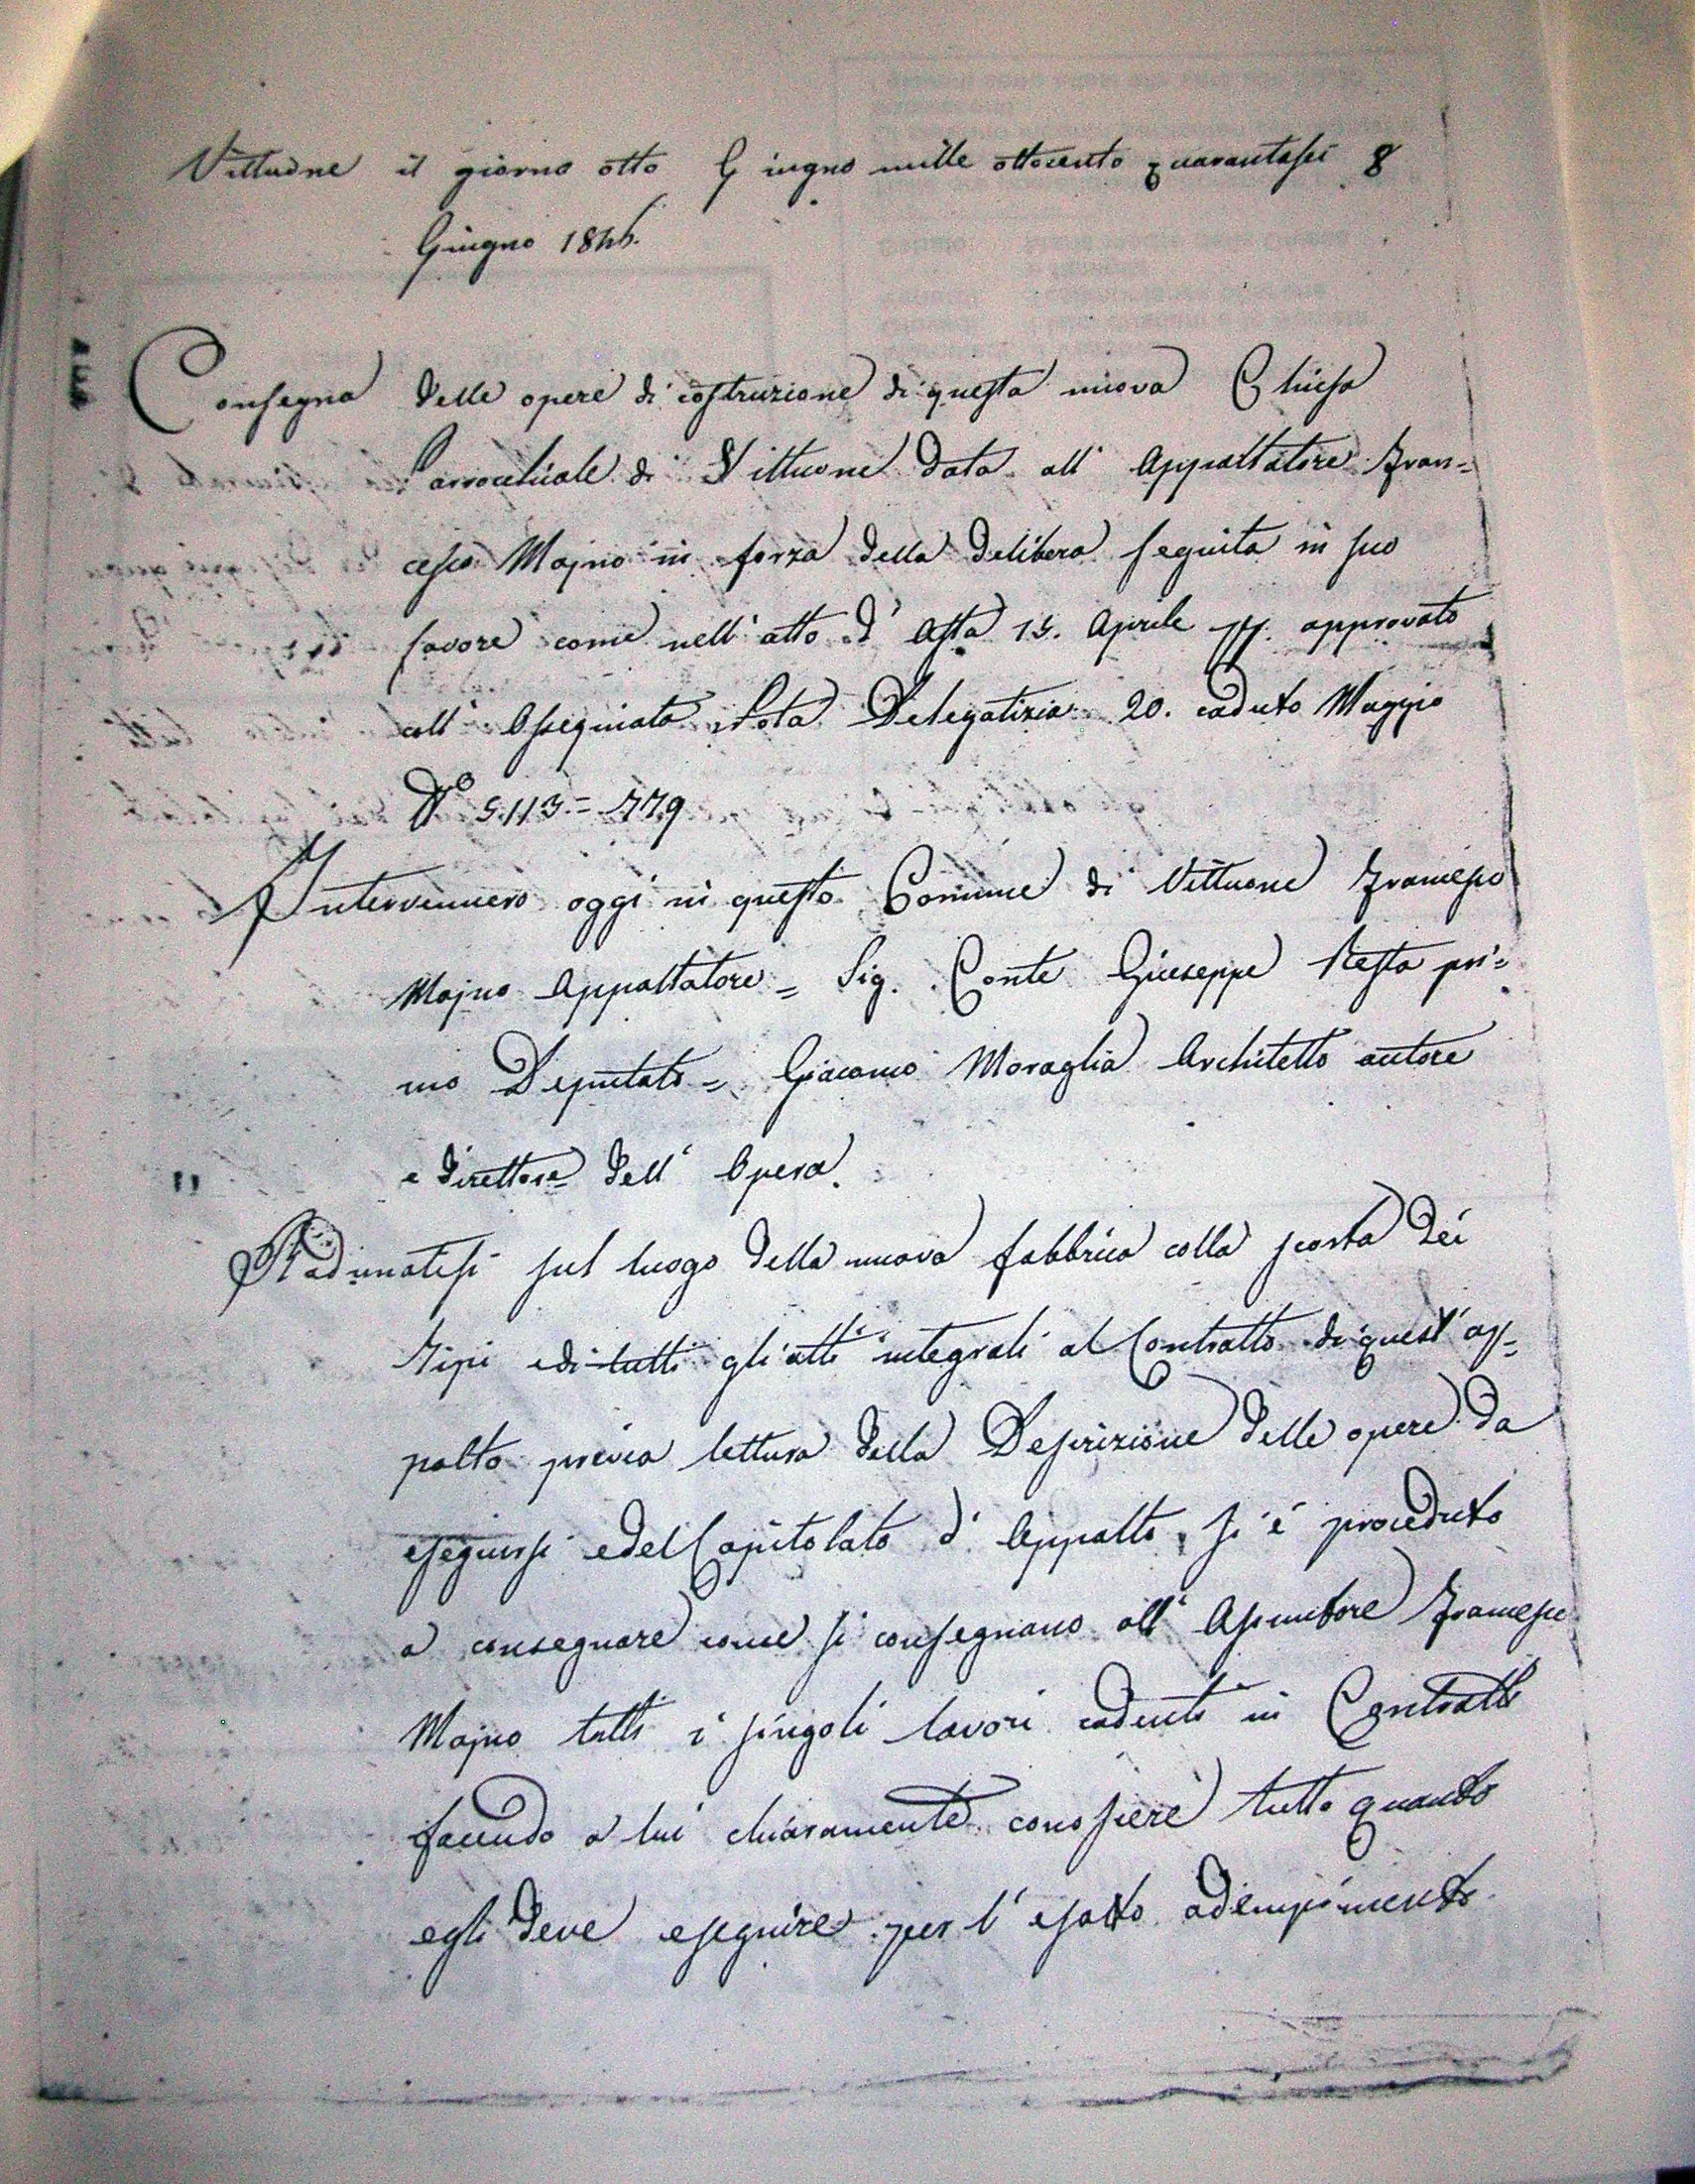 Vittuone il giorno otto Giugno mille ottocento quarantasei 8
Giugno 1846.
Consegna delle opere di costruzione di questa nuova Chiesa
Parrocchiale di Vittuone data all' Appaltatore Fran=
cesco Majno in forza della Delibera seguita in suo
favore come nell' atto d' Asta 15. Aprile pp. approvato
coll' Ossequiata Nota Delegatizia 20. caduto Maggio
N.º 5113.=779
Intervennero oggi in questo Comune di Vittuone Francesco
Majno Appaltatore = Sig. Conte Giuseppe Resta pri=
mo Deputato = Giacomo Moraglia Architetto autore
e direttore dell' Opera.
Radunatisi sul luogo della nuova fabbrica colla scorta dei
Tipi e di tutti gli atti integrali al Contratto di quest' ap=
palto previa lettura della Descrizione delle opere da
eseguirsi e del Capitolato d' Appalto, si é proceduto
a consegnare come si consegnano all' Assuntore Francesco
Majno tutti i singoli lavori cadenti in Contratto
facendo a lui chiaramente conoscere tutto quanto
egli deve eseguire per l' esatto adempimento